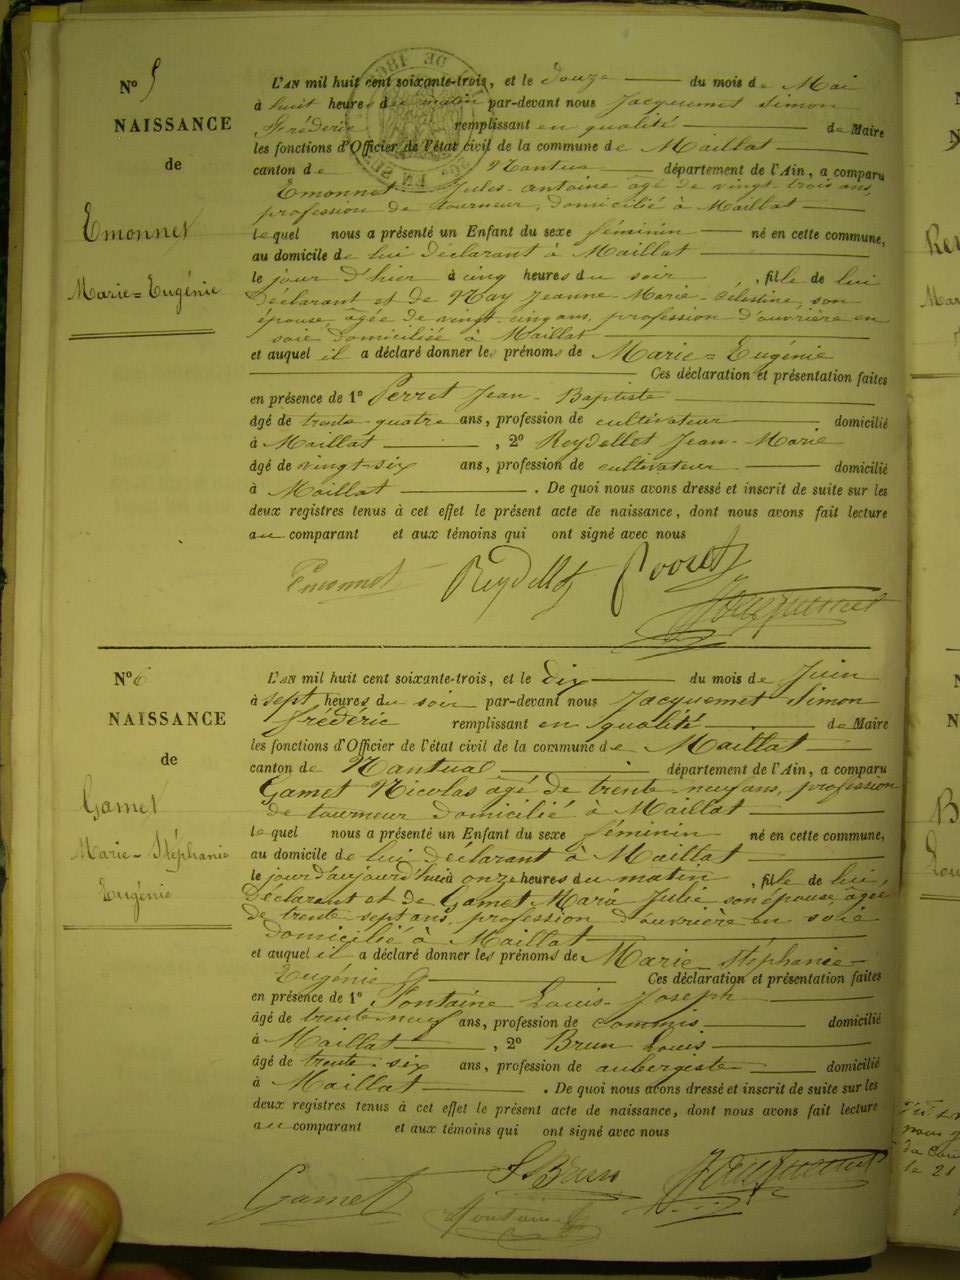 N° 5
NAISSANCE
de
Emonnet
Marie=Eugénie
L'AN mil huit cent soixante-trois, et le douze du mois de Mai
à huit heures du matin par-devant nous Jacquemet Simon
Frédéric remplissant en qualité de Maire
les fonctions d'Officier de l'état civil de la commune de Maillat
canton de Nantua département de l'Ain, a comparu
Emonnet Jules-Antoine âgé de vingt-trois ans,
profession de tourneur, domicilié à Maillat
lequel nous a présenté un Enfant du sexe féminin né en cette commune,
au domicile de lui déclarant à Maillat
le jour d'hier à cinq heures du soir, fille de lui
déclarant et de Nay Jeanne-Marie-Célestine, son
épouse âgée de vingt-cinq ans, profession d'ouvrière en
soie domiciliée à Maillat
et auquel il a déclaré donner les prénoms de Marie=Eugénie
Ces déclaration et présentation faites
en présence de 1° Perret Jean-Baptiste
âgé de trente-quatre ans, profession de cultivateur domicilié
à Maillat, 2° Reydellet Jean-Marie
âgé de vingt-six ans, profession de cultivateur domicilié
à Maillat. De quoi nous avons dressé et inscrit de suite sur les
deux registres tenus à cet effet le présent acte de naissance, dont nous avons fait lecture
au comparant et aux témoins qui ont signé avec nous
Emonnet Reydellet Perret
Jacquemet
N° 6
NAISSANCE
de
Gamet
Marie-Stéphanie
Eugénie
L'AN mil huit cent soixante-trois, et le dix du mois de Juin
à sept heures du soir par-devant nous Jacquemet Simon
frédéric remplissant en qualité de Maire
les fonctions d'Officier de l'état civil de la commune de Maillat
canton de Nantua département de l'Ain, a comparu
Gamet Nicolas âgé de trente-neuf ans, profession
de tourneur domicilié à Maillat
lequel nous a présenté un Enfant du sexe féminin né en cette commune,
au domicile de lui déclarant à Maillat
le jour d'aujourd'hui à onze heures du matin, fille de lui,
déclarant et de Gamet Maria Julie son épouse âgée
de trente sept ans, profession d'ouvrière en soie
domicilié à Maillat
et auquel il a déclaré donner les prénoms de Marie-Stéphanie-
Eugénie Ces déclaration et présentation faites
en présence de 1° Fontaine Louis-Joseph
âgé de trente-neuf ans, profession de commis domicilié
à Maillat, 2° Brun Louis
âgé de trente-six ans, profession de aubergiste domicilié
à Maillat. De quoi nous avons dressé et inscrit de suite sur les
deux registres tenus à cet effet le présent acte de naissance, dont nous avons fait lecture
au comparant et aux témoins qui ont signé avec nous
Gamet L Brun Jacquemet
Fontaine